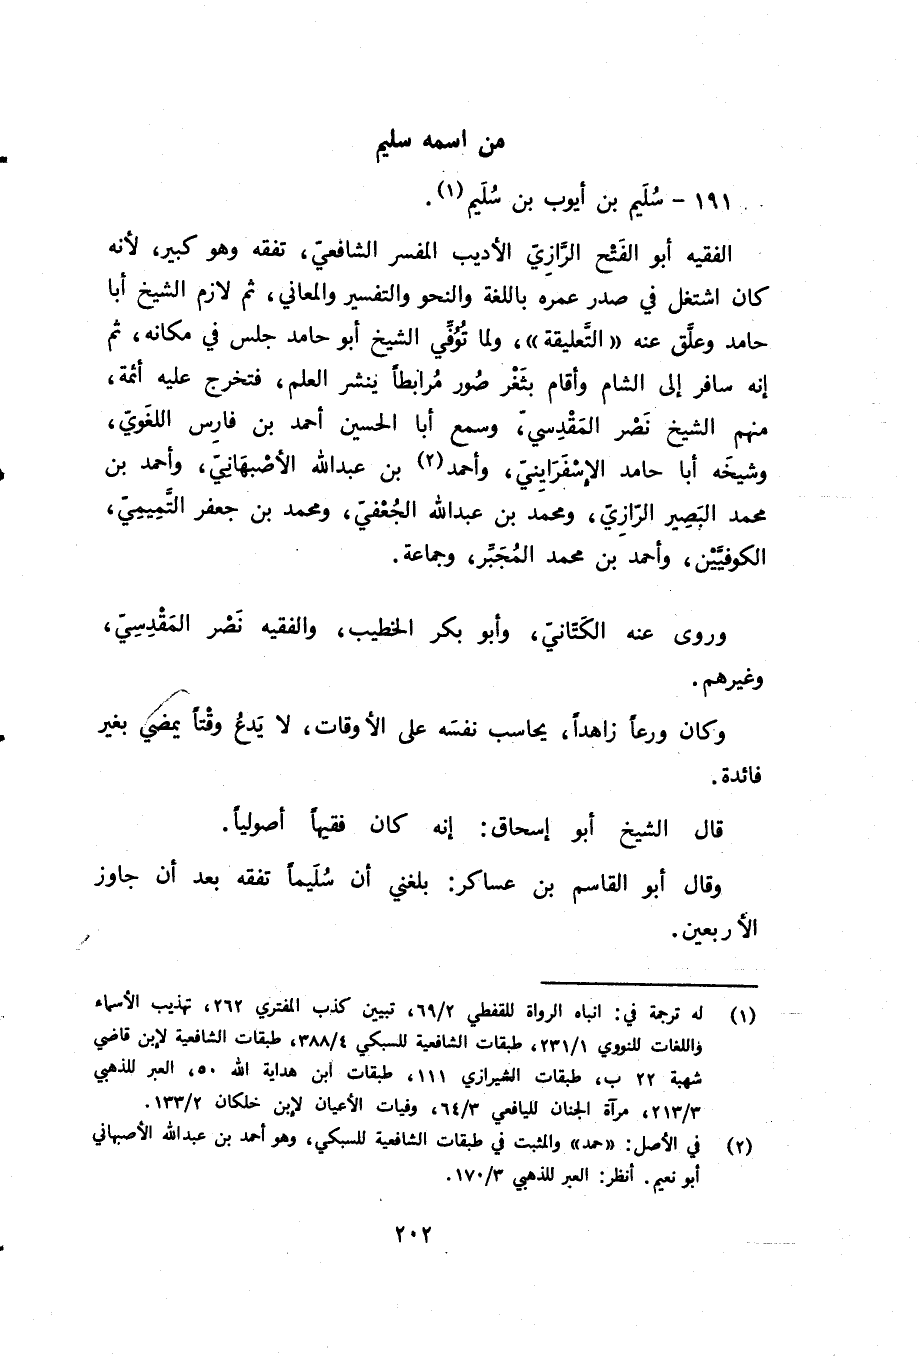 من اسمه سليم
١٩١ - سُلَيم بن أيوب بن سُلَيم(١).
الفقيه أبو الفَتْح الرَّازِيّ الأديب المفسر الشافعيّ، تفقه وهو كبير، لأنه
كان اشتغل في صدر عمره باللغة والنحو والتفسير والمعاني، ثم لازم الشيخ أبا
حامد وعلَّق عنه «التَّعليقة»، ولما تُوُفِّي الشيخ أبو حامد جلس في مكانه، ثم
إنه سافر إلى الشام وأقام بثَغْر صُور مُرابطاً ينشر العلم، فتخرج عليه أئمة،
منهم الشيخ نَصْر المَقْدِسيّ، وسمع أبا الحسين أحمد بن فارِس اللغَويّ،
وشيخَه أبا حامد الإسْفَرَاينِيّ، وأحمد(٢) بن عبدالله الأصْبهَانِيّ، وأحمد بن
محمد البَصِير الرّازِيّ، ومحمد بن عبدالله الجُعْفيّ، ومحمد بن جعفر التَّمِيمِيّ،
الكوفيَّيْن، وأحمد بن محمد المُجَبِّر، وجماعة.
وروى عنه الكَتّانيّ، وأبو بكر الخطيب، والفقيه نَصْر المَقْدِسِيّ،
وغيرهم.
وكان ورعاً زاهداً، يحاسب نفسَه على الأوقات، لا يَدعُ وقْتاً يمضي بغير
فائدة.
قال الشيخ أبو إسحاق: إنه كان فقيهاً أصولياً.
وقال أبو القاسم بن عساكر: بلغني أن سُلَيماً تفقه بعد أن جاوز
الأربعين.
(١) له ترجمة في: انباه الرواة للقفطي ٦٩/٢، تبيين كذب المفتري ٢٦٢، تهذيب الأسماء
واللغات للنووي ٢٣١/١، طبقات الشافعية للسبكي ٣٨٨/٤، طبقات الشافعية لإبن قاضي
شهبة ٢٢ ب، طبقات الشيرازي ١١١، طبقات ابن هداية الله ٥٠، العبر للذهبي
٢١٣/٣، مرآة الجنان لليافعي ٦٤/٣، وفيات الأعيان لإبن خلكان ١٣٣/٢.
(٢) في الأصل: «حمد» والمثبت في طبقات الشافعية للسبكي، وهو أحمد بن عبدالله الأصبهاني
أبو نعيم. أنظر: العبر للذهبي ١٧٠/٣.
٢٠٢